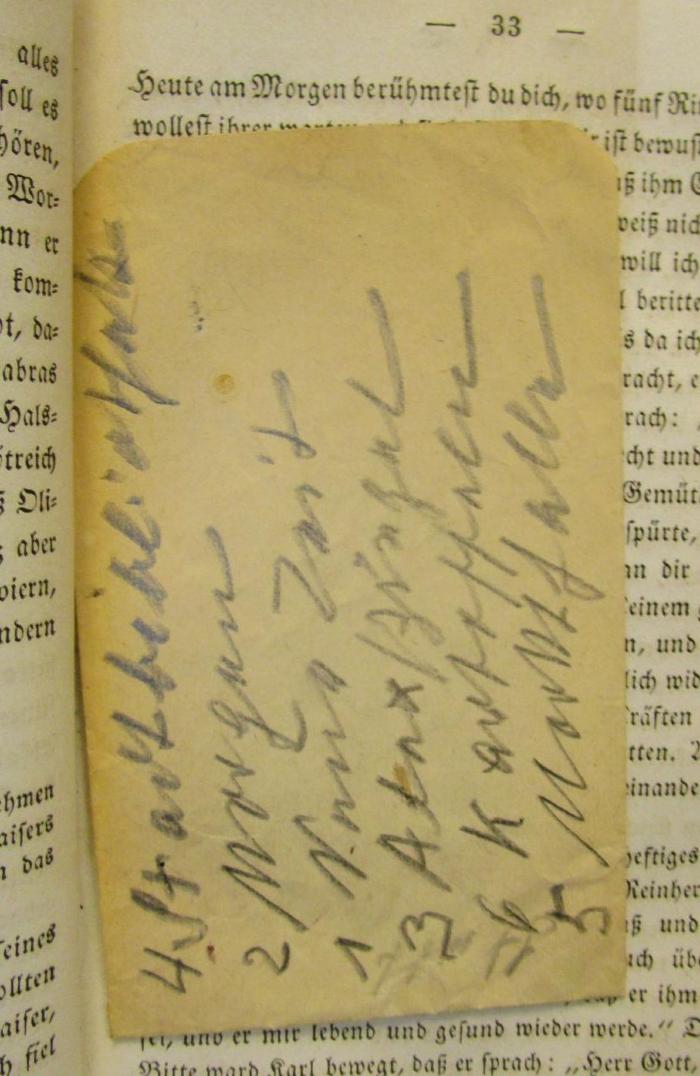 alles
soll es
hören,
Wor-
nn er
kom-
ot, da-
abras
Hals-
streich
ß Oli-
; aber
oiern,
ndern
ehmen
aisers
n das
seines
ollten
aiser,
h fiel
— 33 —
Heute am Morgen berühmtest du dich, wo fünf Ri
wollest ihrer warten
ist bewus
ß ihm
weiß nic
will ich
l beritte
s da ich
racht, e
rach:
cht und
Gemüt
spürte,
an dir
einem
n, und
lich wid
räften
tten.
einande
heftiges
Reinher
ß und
uch übe
er ihm
sei, und er mir lebend und gesund wieder werde.“ D
Bitte ward Karl bewegt, daß er sprach: „Herr Gott,
4 Stadtbibliothek
2 Morgen
1 Neue Zeit
3
6 Kartoffeln
5 Markthalle